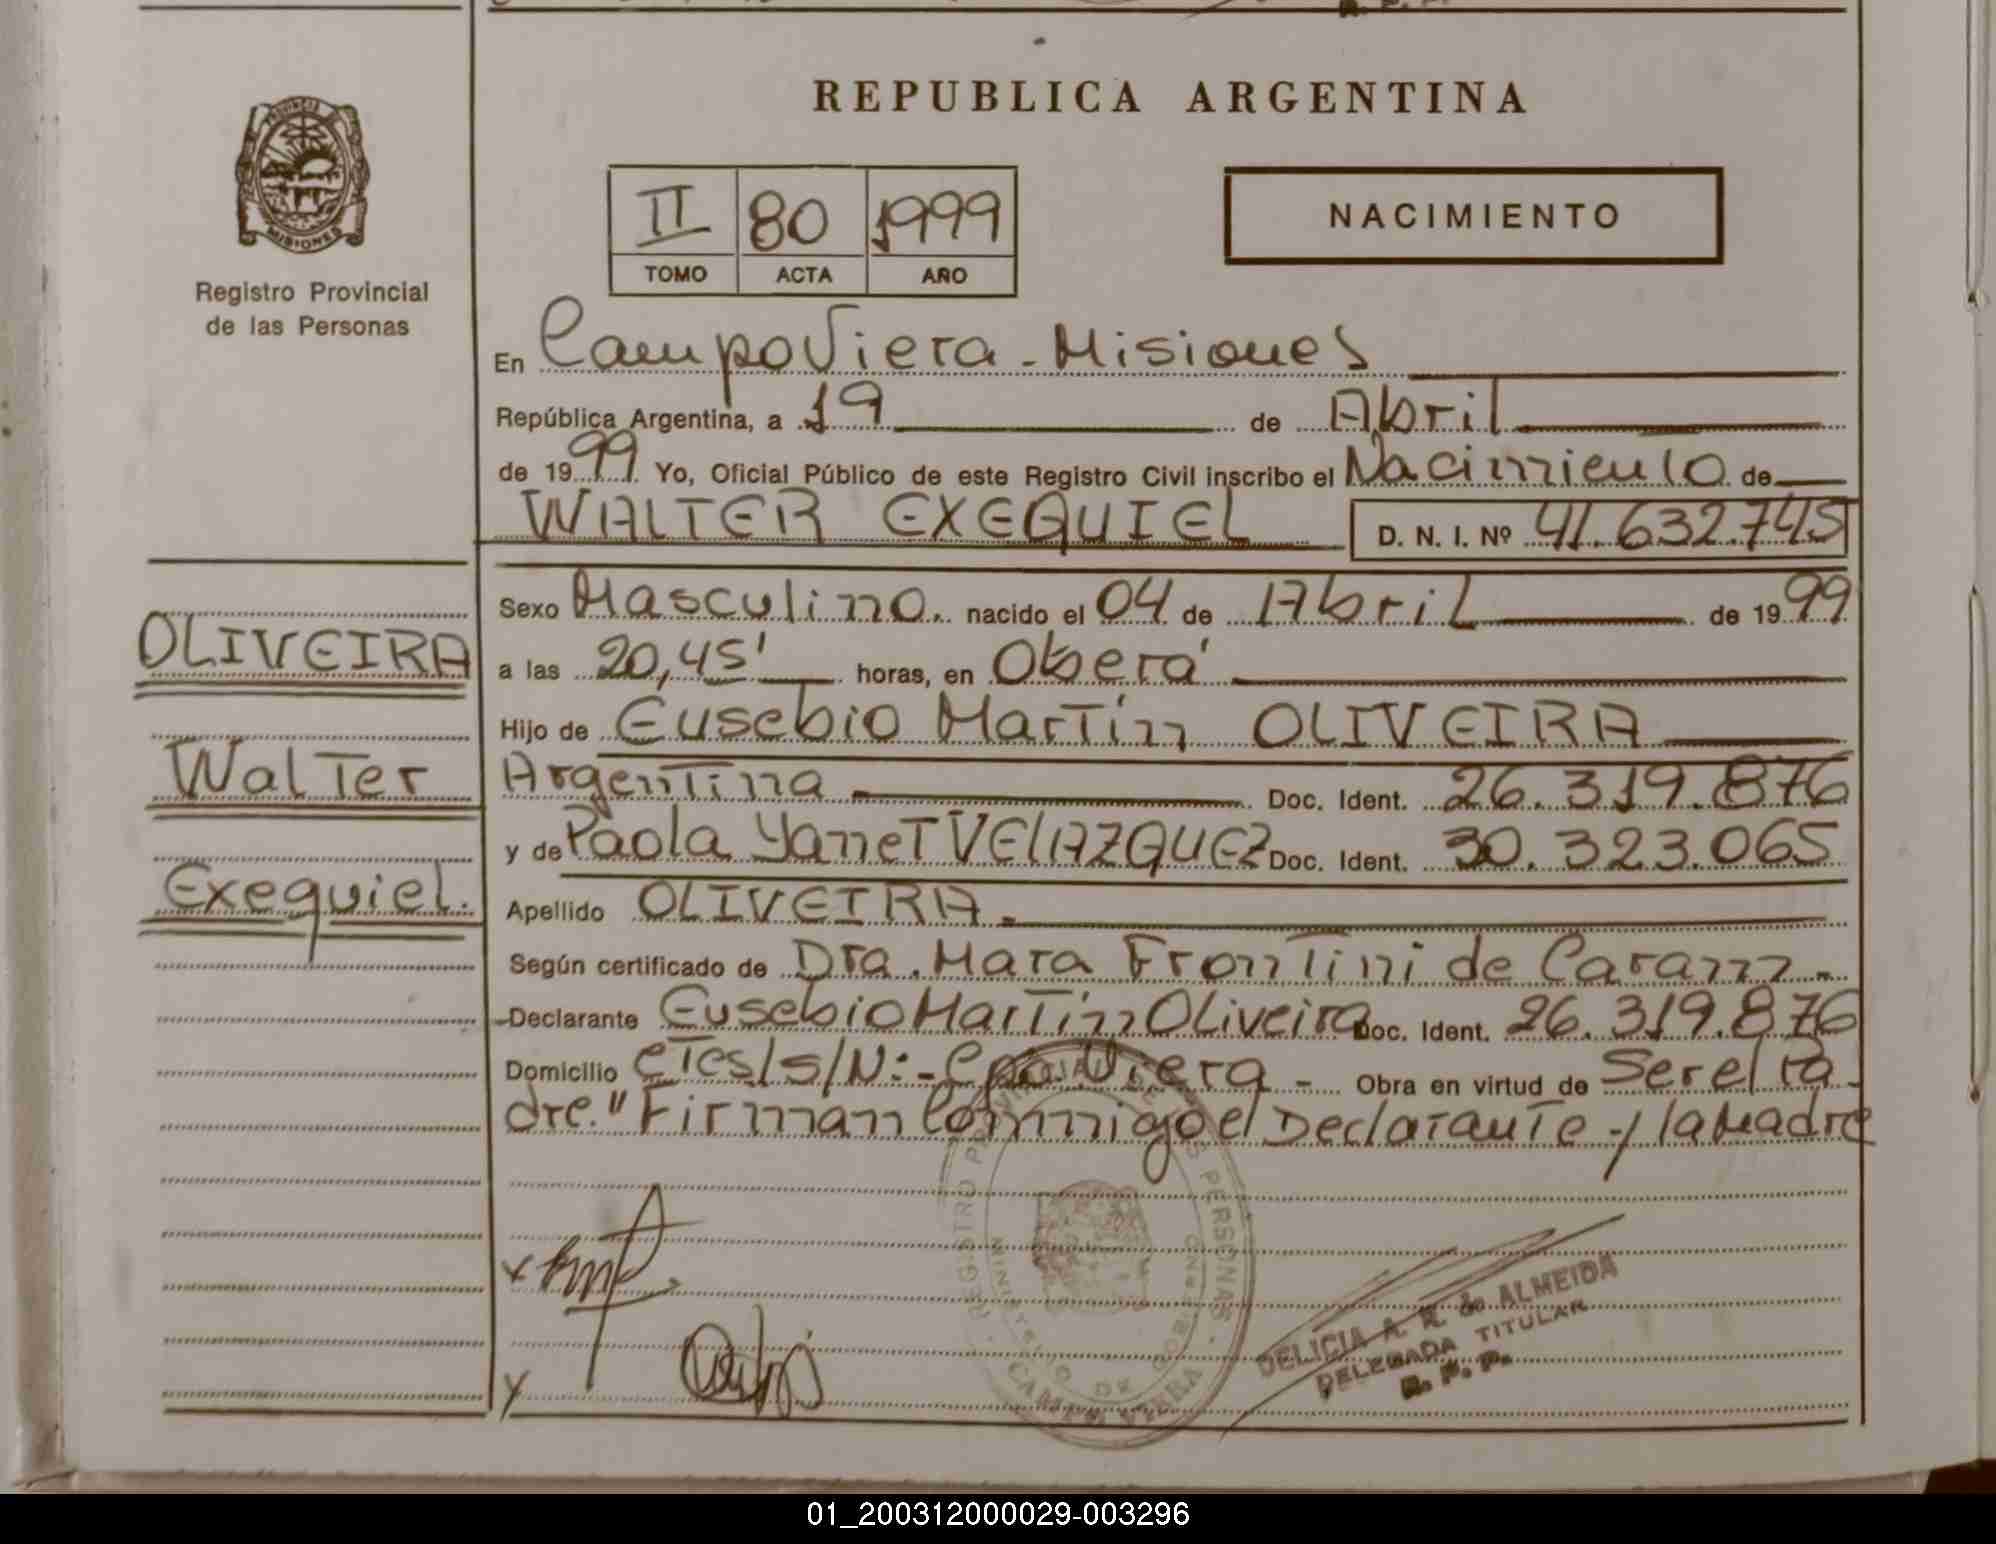 REPUBLICA ARGENTINA
PROVINCIA
MISIONES
Registro Provincial
de las Personas
II 80 1999
TOMO ACTA AÑO
NACIMIENTO
En Campo Viera - Misiones
República Argentina, a 19 de Abril
de 1999 Yo, Oficial Público de este Registro Civil inscribo el Nacimiento de
WALTER EXEQUIEL D. N. I. Nº 41.632.745
Sexo Masculino. nacido el 04 de Abril de 1999
a las 20,45' horas, en Oberá
Hijo de Eusebio Martín OLIVEIRA
Argentina Doc. Ident. 26.319.876
y de Paola Yanet VELAZQUEZ Doc. Ident. 30.323.065
Apellido OLIVEIRA
Según certificado de Dra. Mara Frontini de
Declarante Eusebio Martín Oliveira Doc. Ident. 26.319.876
Domicilio S/N: - Cpo. Viera - Obra en virtud de Ser el Pa-
dre." Firman Conmigo el Declarante y la Madre
OLIVEIRA
Walter
Exequiel.
REGISTRO PROVINCIAL DE LAS PERSONAS
MINISTERIO DE GOBIERNO
CAMPO VIERA
DELICIA A. R. de ALMEIDA
DELEGADA TITULAR
R. P. P.
01_200312000029-003296